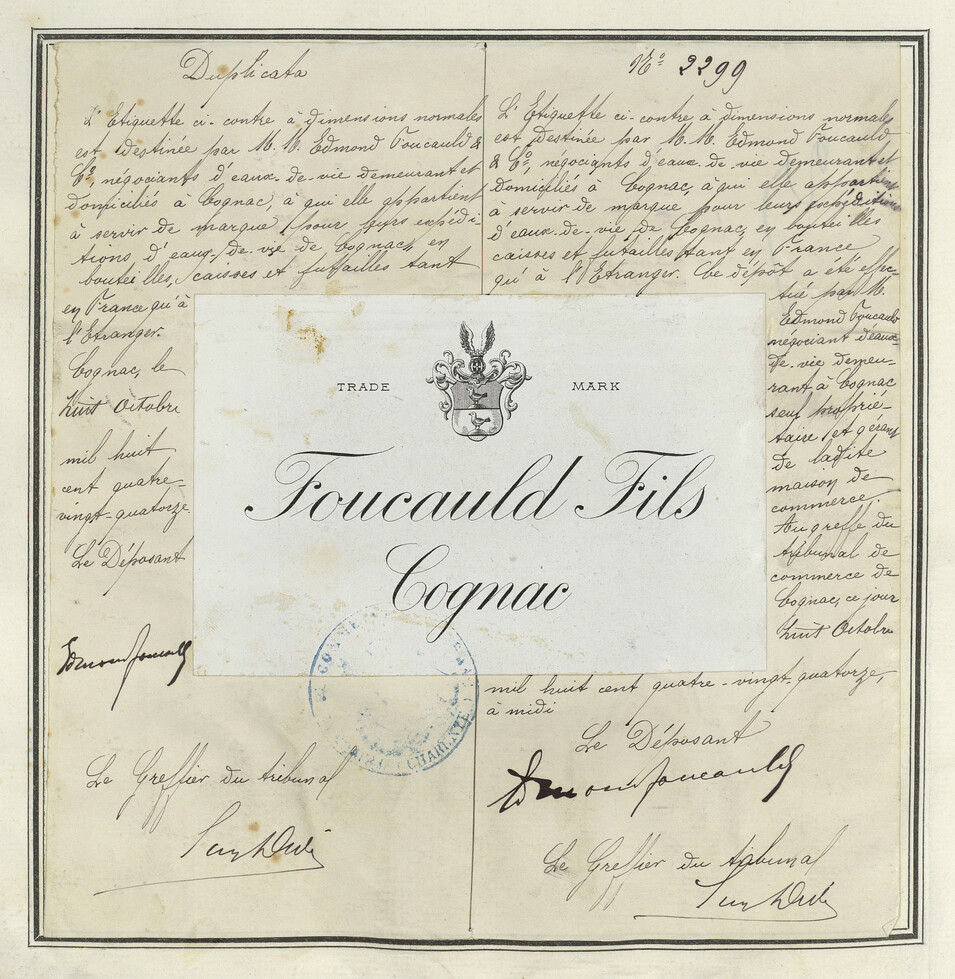 Duplicata
L'Etiquette ci-contre à dimensions normales
est destinée par M. M. Edmond Foucauld &
Cº, négociants d'eaux-de-vie demeurant et
domiciliés à Cognac, à qui elle appartient
à servir de marque pour leurs expédi-
tions d'eaux-de-vie de Cognac, en
bouteilles, caisses et futailles tant
en France qu'à
l'Etranger.
Cognac, le
huit Octobre
mil huit
cent quatre-
vingt-quatorze.
Le Déposant
Edmond Foucauld
Le Greffier du tribunal
Nº 2299
L'Etiquette ci-contre à dimensions normales
est destinée par M. M. Edmond Foucauld
& Cº, négociants d'eaux-de-vie demeurant et
domiciliés à Cognac, à qui elle appartient
à servir de marque pour leurs expéditions
d'eaux-de-vie de Cognac, en bouteilles
caisses et futailles tant en France
qu'à l'Etranger. Ce dépôt a été effec-
tué par M.
Edmond Foucauld
négociant d'eaux-
de-vie demeu-
rant à Cognac
seul proprié-
taire et gérant
de ladite
maison de
commerce.
Au greffe du
tribunal de
commerce de
Cognac, ce jour
huit Octobre
mil huit cent quatre-vingt-quatorze,
à midi
Le Déposant
Edmond Foucauld
Le Greffier du tribunal
TRADE MARK
Foucauld Fils
Cognac